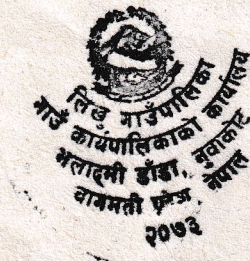 लिखु गाउँपालिका
गाउँ कार्यपालिकाको कार्यालय
भलादमी डाँडा, नुवाकोट
बागमती प्रदेश नेपाल
२०७३